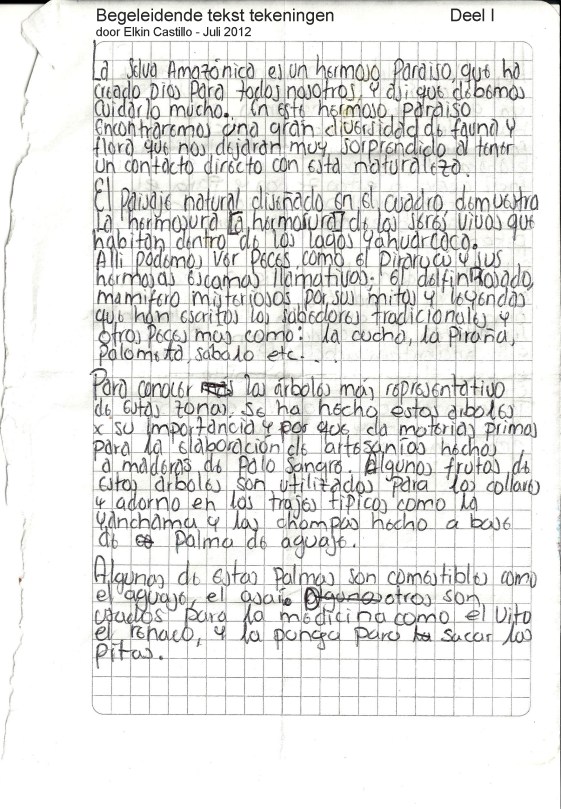 Begeleidende tekst tekeningen Deel I
door Elkin Castillo - Juli 2012
La Selva Amazónica es un hermoso Paraiso, que ha
creado Dios Para todos nosotros, y asi que debemos
cuidarlo mucho. En este hermoso, paraiso
encontraremos una gran diversidad de fauna y
flora que nos dejaran muy sorprendido al tener
un contacto directo con esta naturaleza.
El Paisaje natural diseñado en el cuadro demuestra
la hermosura [la hermosura] de los seres vivos que
habitan dentro de los lagos Yahuarcaca.
Alli podemos ver Peces, como el Pirarucu y sus
hermosas escamas llamativos; el delfin Rosado,
mamifero misteriosos por sus mitos y leyendas
que han escritos los sabedores tradicionales y
otros Peces mas como: la cucha, la Piraña,
Palometa, sabalo etc. . .
Para conocer los árboles más representativo
de estas zonas. Se ha hecho estos arboles
x su importancia y por que da materias primas
para la elaboración de artesanías hechos
a maderas de Palo Sangre. Algunos frutas de
estos árboles son utilizados para los collares
y adorno en los trajes típicos como la
Yanchama y las chompas hecho a base
de Palma de aguaje.
Algunas de estas Palmas son comestibles como
el aguaje, el asaí. otros son
usados para la medicina como el Uito
el renaco, y la punga para sacar las
pitas.